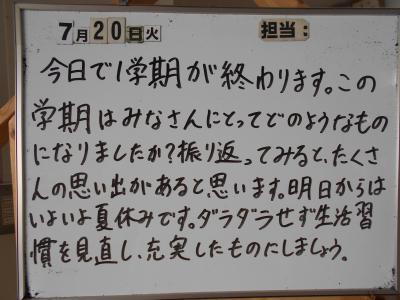 7月20日火 担当:
今日で1学期が終わります。この
学期はみなさんにとってどのようなもの
になりましたか?振り返ってみると、たくさ
んの思い出があると思います。明日からは
いよいよ夏休みです。ダラダラせず生活習
慣を見直し、充実したものにしましょう。